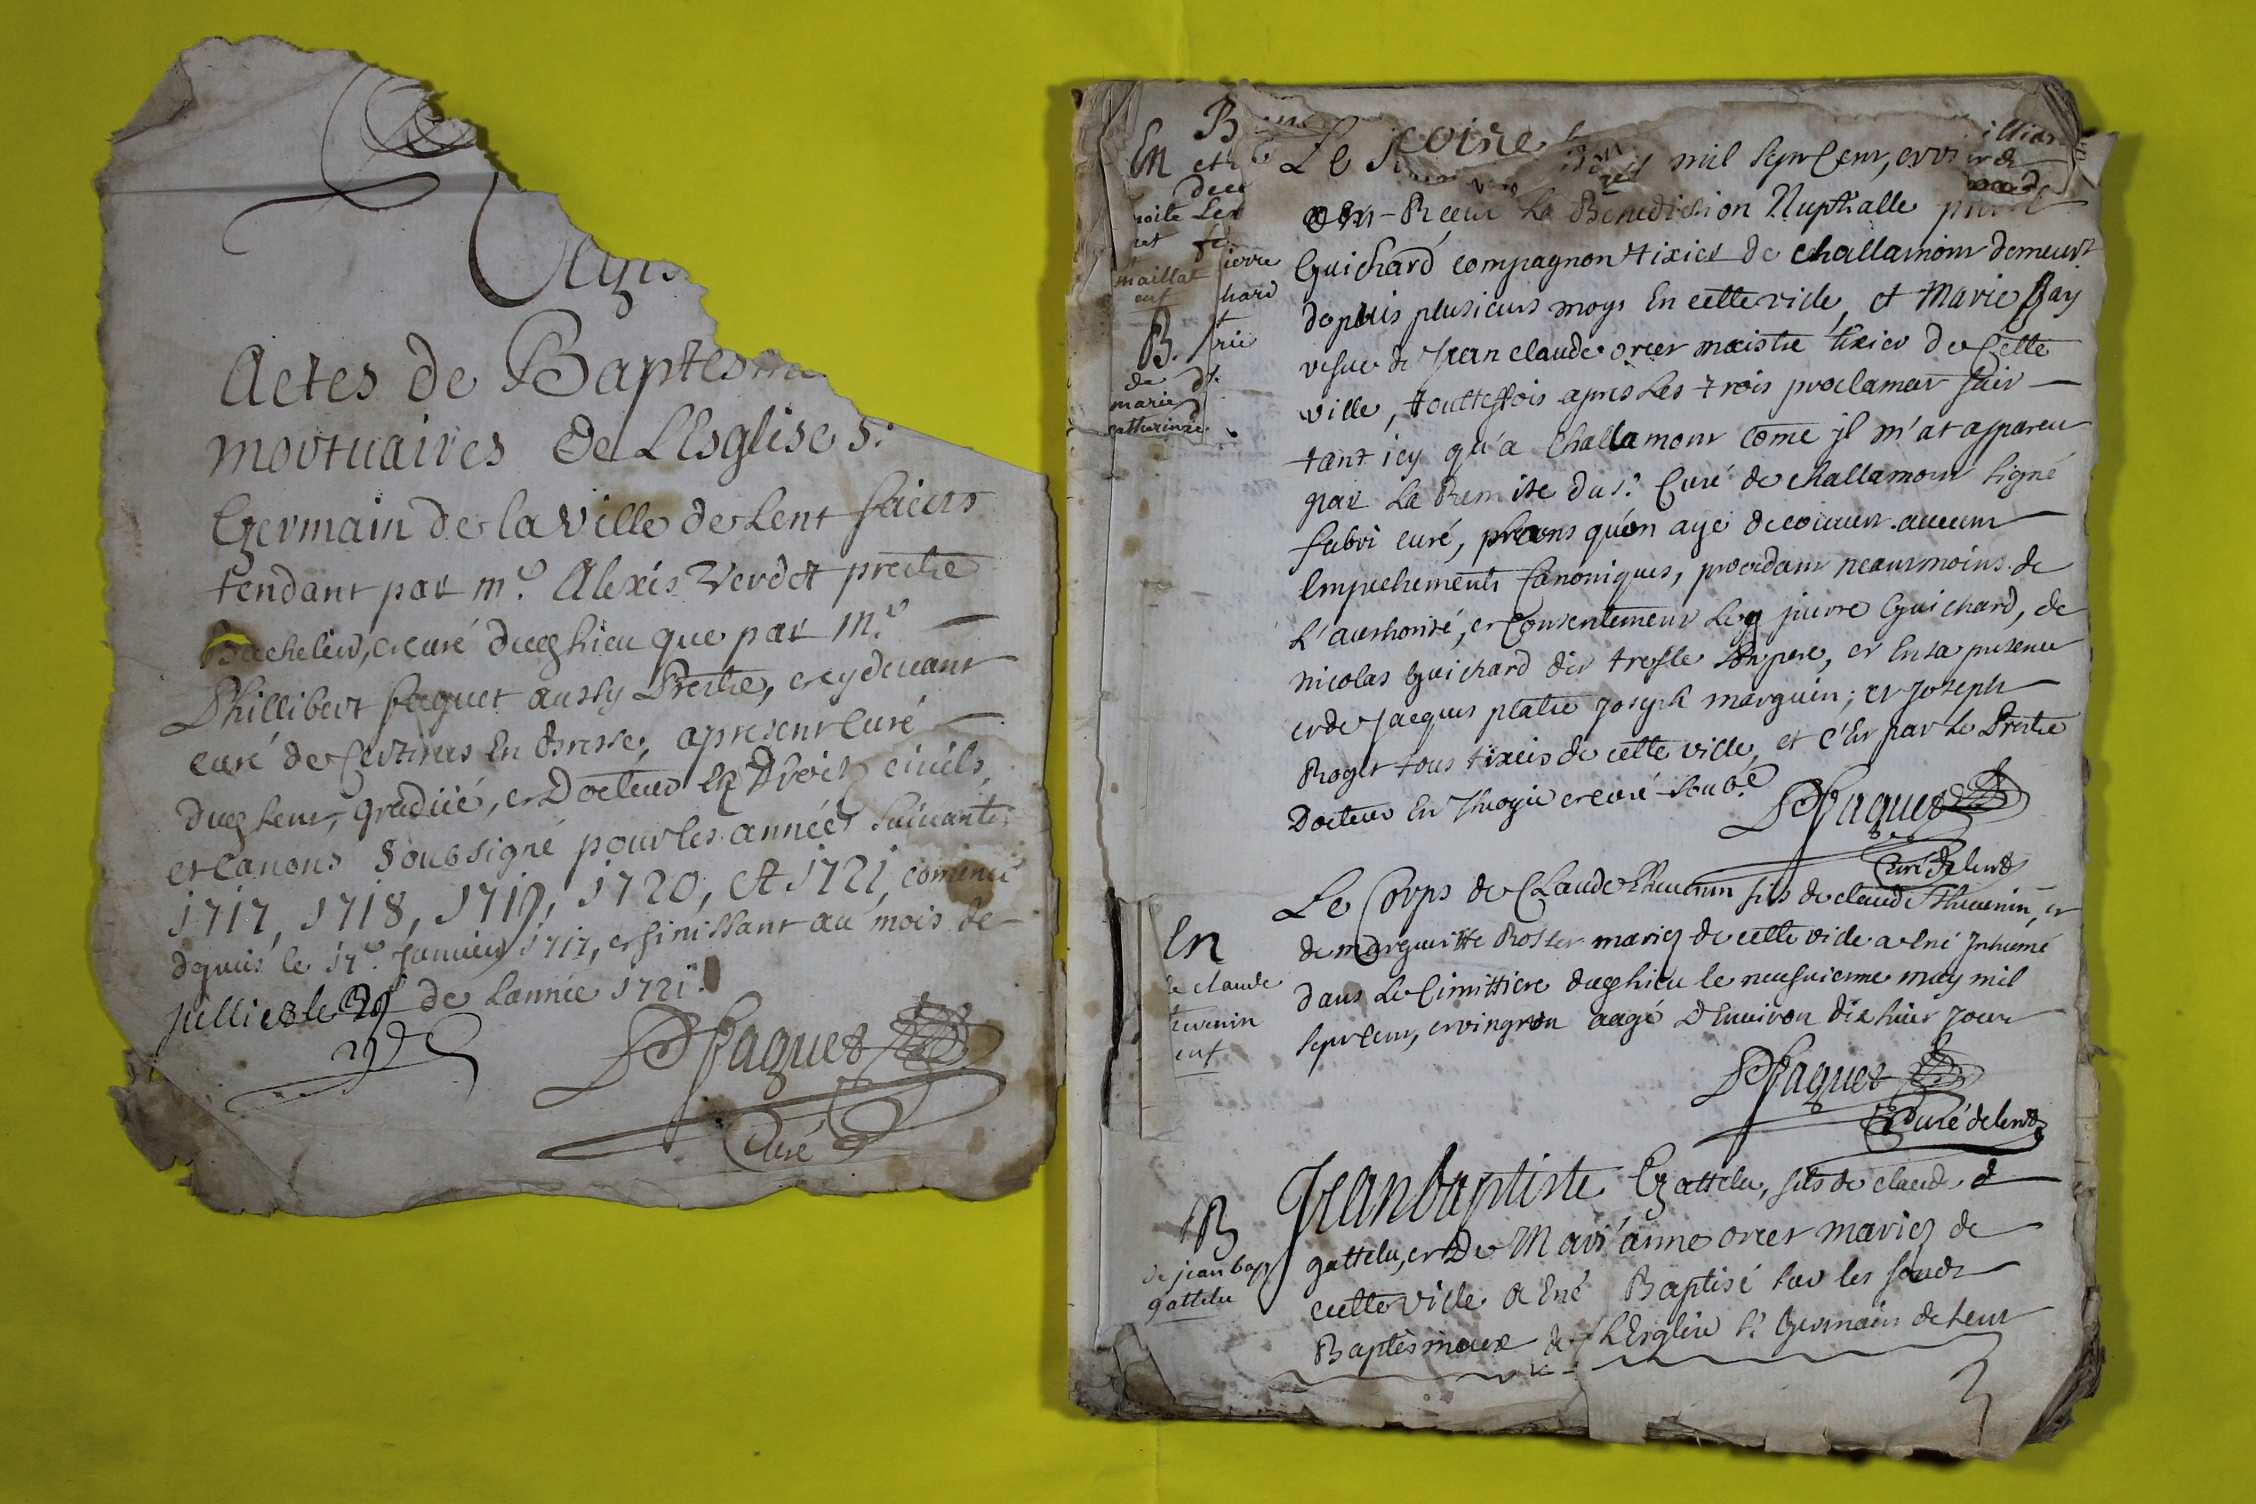 Actes de Baptesme
mortuaires de L'Esglise S.
Germain de la ville de Lent faicts
tendant par m.e Alexis Verdet prestre
Bachelier, et curé dueg lieu que par M.e
Phillibert faguet aussy Prestre, cy devant
curé de Certines En Bresse, apresent Curé
dueg Lent, gradué, et Docteur En Droits civils,
et Canons Soubsigné pour les années suivantes
1717, 1718, 1719, 1720, et 1721, commencé
depuis le 17.e Janvier 1717, et finissant au mois de
Juillie le 29 de Lannée 1721.
29
P faguet
Curé
B
En
Le mil sept Cent, et
Receu La Benediction Nuptialle
Guichard compagnon tixier de Challamont demeurt
depuis plusieurs moys En cette ville, et Marie Bay
vefue de Jean claude orcet maistre tixier de Cette
ville, touttesfois apres Les trois proclamat fait
tant icy qu'a Challamont Come jl m'at appareu
par La Remise du S.r Curé de Challamont signé
fabri curé, sans qu'on aye decouuert aucun
Empechements Canoniques, procedant neantmoins de
L'authorité, et Consentement Led pierre Guichard, de
nicolas Guichard dit tresle son pere, et En sa presence
et de Jacques platre Joseph marguin; et Joseph
Roget tous tixiers de cette ville, et c'Est par Le Prestre
Docteur En Theogie et curé soub.é
P faguet
Curé de lent
maillat
enf
B.
de
marie
catherine
En
de claude
thevenin
enf
Le Corps de Claude Thevenin fils de claude Thevenin, et
de margueritte Rosset mariez de cette ville a Eté Inhumé
dans Le Cimittiere dueg lieu le neufuieme may mil
sept Cent, et vingt un aagé D'Enuiron dix huit Jours
P faguet
Curé de lent
B
de jean bap
gattelu
Jean baptiste Gattelu, fils de claude
gattelu, et De Mari'anne orcet mariez de
cette ville a Eté Baptisé sur les fonds
Baptismaux de L'Esglise S.t Germain de Lent